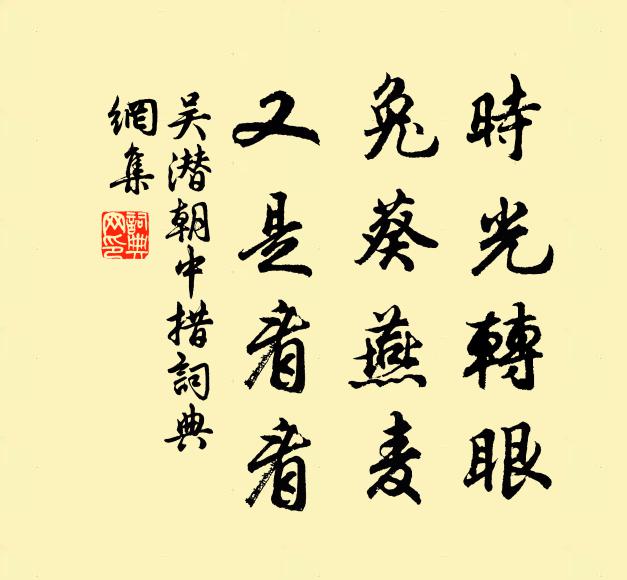 時光轉眼
兔葵燕麦
又是看看
吴潜朝中措詞典
網集
詞典網印